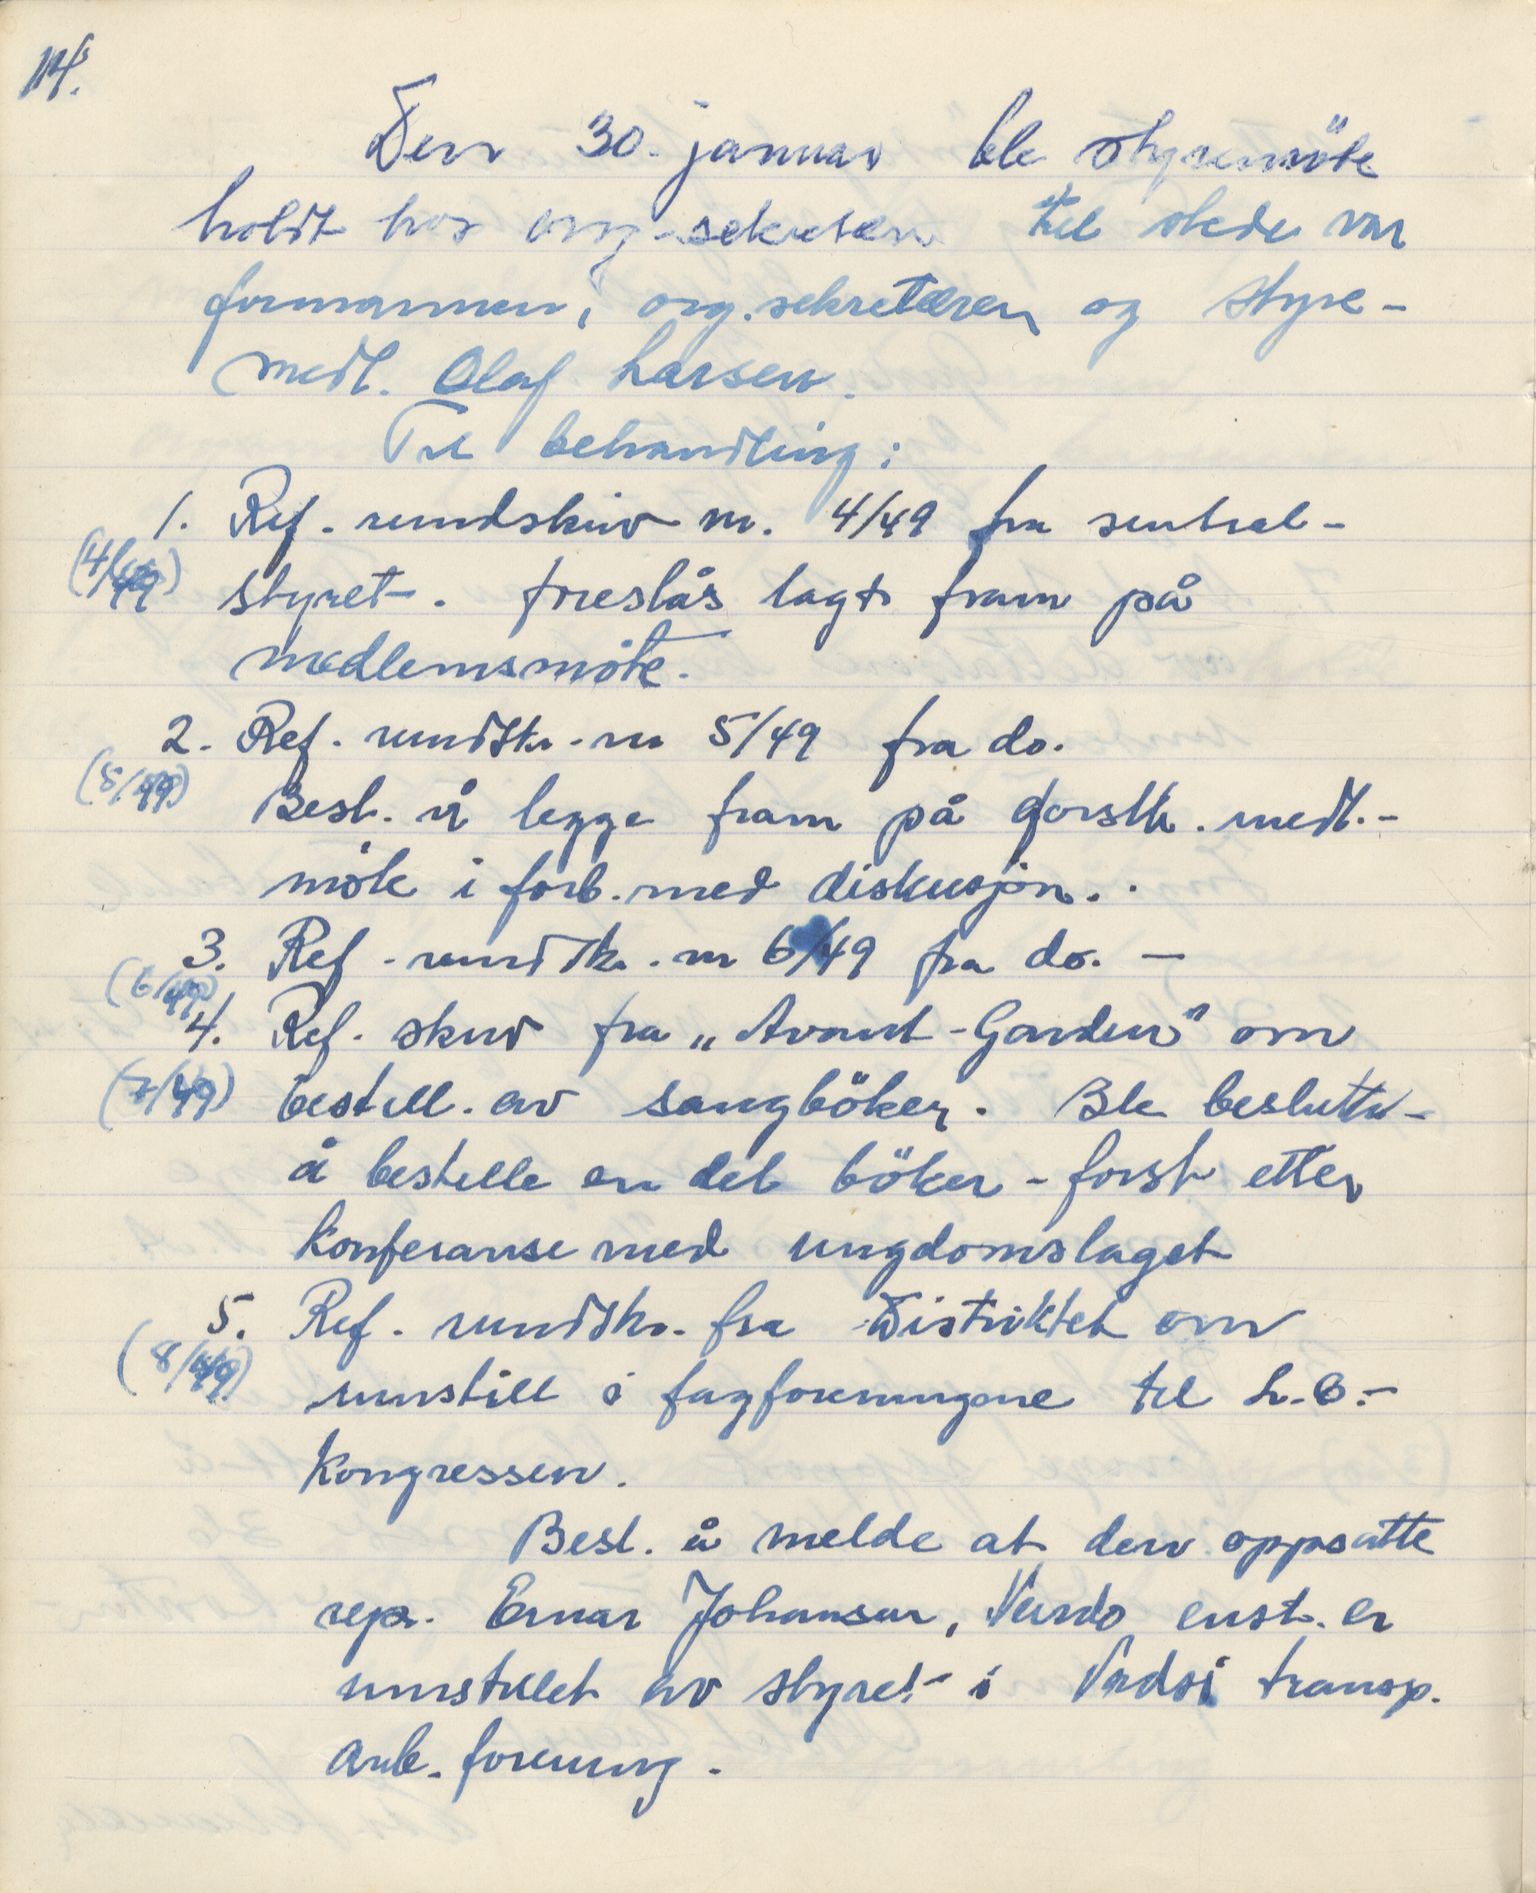 14.
Den 30. januar ble styremöte
holdt hos org-sekretæren til stede var
formannen, org.sekretæren og styre-
medl. Olaf Larsen.
Til behandling:
1. Ref. rundskriv nr. 4/49 fra sentral-
(4/49) styret. foreslås lagt fram på
medlemsmöte.
2. Ref. rundskr. nr 5/49 fra do.
(5/49)
Besl. å legge fram på förstk. medl.-
möte i forb. med diskusjon.
3. Ref. rundskr. nr 6/49 fra do. —
(6/49)
4. Ref. skriv fra „Avant-Garden" om
(7/49) bestill. av sangböker. Ble besluttet
å bestille en del böker - först etter
konferanse med ungdomslaget
5. Ref. rundskr. fra Distriktet om
(8/49)
innstill i fagforeningene til L.O.-
kongressen.
Besl. å melde at den oppsatte
rep. Einar Johansen, enst. er
innstillet av styret i Vadsö transp.
arb. forening.